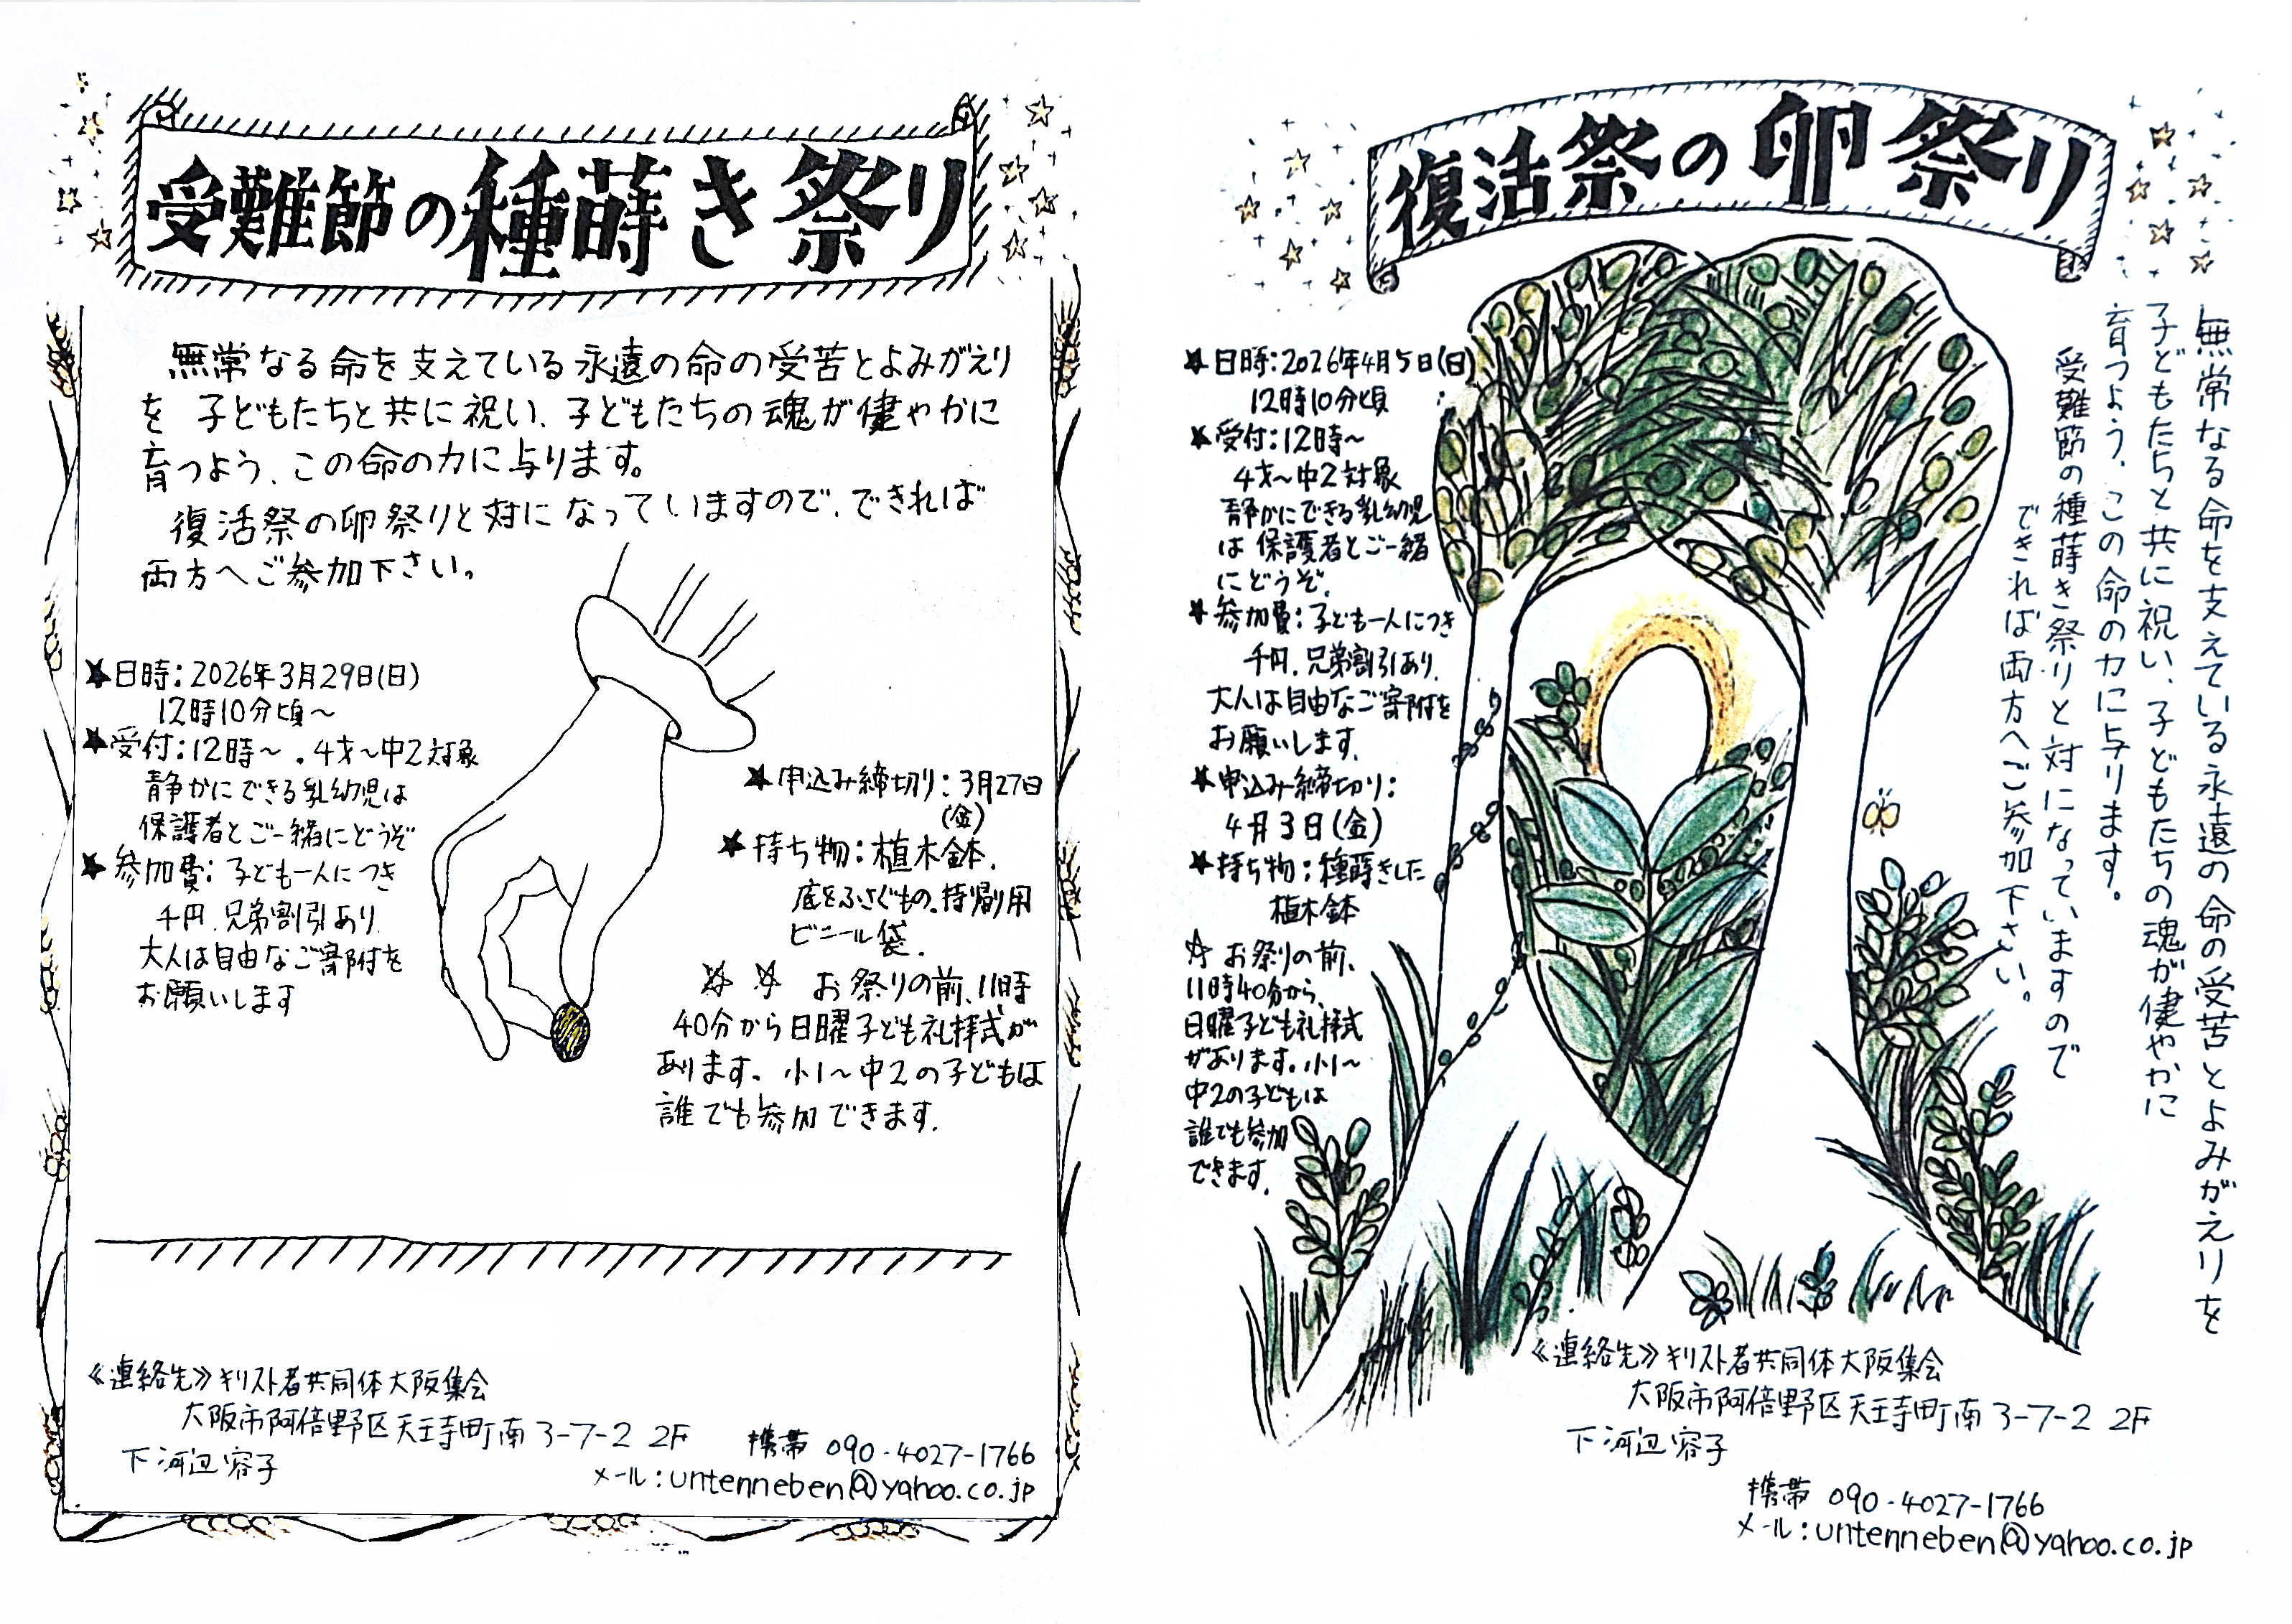 受難節の種蒔き祭り
無常なる命を支えている永遠の命の受苦とよみがえり
を 子どもたちと共に祝い、子どもたちの魂が健やかに
育つよう、この命の力に与ります。
復活祭の卵祭りと対になっていますので、できれば
両方へご参加下さい。
★日時:2026年3月29日(日)
12時10分頃～
★受付:12時～ .4才～中2対象
静かにできる乳幼児は
保護者とご一緒にどうぞ
★参加費:子ども一人につき
千円.兄弟割引あり.
大人は自由なご寄附を
お願いします
★申込み締切り:3月27日
(金)
★持ち物:植木鉢.
底をふさぐもの.持帰り用
ビニール袋.
☆ ☆ お祭りの前、11時
40分から日曜子ども礼拝式が
あります。小1～中2の子どもは
誰でも参加できます.
《連絡先》キリスト者共同体大阪集会
大阪市阿倍野区天王寺町南3-7-2 2F
下河辺容子
携帯 090-4027-1766
メール:untenneben@yahoo.co.jp
復活祭の卵祭り
無常なる命を支えている永遠の命の受苦とよみがえりを
子どもたちと共に祝い、子どもたちの魂が健やかに
育つよう、この命の力に与ります。
受難節の種蒔き祭りと対になっていますので
できれば両方へご参加下さい。
★日時:2026年4月5日(日)
12時10分頃
★受付:12時～
4才～中2対象
静かにできる乳幼児
は 保護者とご一緒
にどうぞ.
★参加費:子ども一人につき
千円.兄弟割引あり.
大人は自由なご寄附を
お願いします.
★申込み締切り:
4月3日(金)
★持ち物:種蒔きした
植木鉢
☆ お祭りの前、
11時40分から、
日曜子ども礼拝式
があります。小1～
中2の子どもは
誰でも参加
できます.
《連絡先》キリスト者共同体大阪集会
大阪市阿倍野区天王寺町南3-7-2 2F
下河辺容子
携帯 090-4027-1766
メール:untenneben@yahoo.co.jp